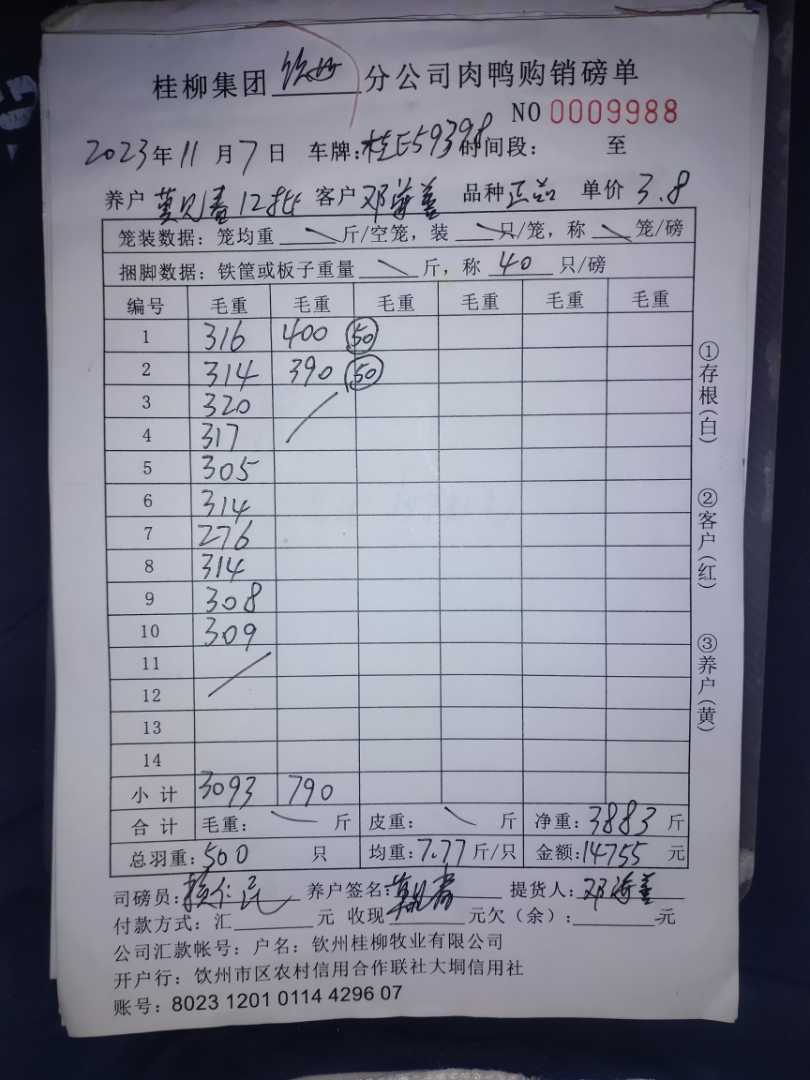 桂柳集团 钦州 分公司肉鸭购销磅单
NO 0009988
2023年11月7日 车牌:桂E59398 时间段: 至
养户 莫见春12批 客户 邓海善 品种 正品 单价 3.8
笼装数据：笼均重 斤/空笼，装 只/笼，称 笼/磅
捆脚数据：铁筐或板子重量 斤，称 40 只/磅
编号 毛重 毛重 毛重 毛重 毛重 毛重
1 316 400 50
2 314 390 50
3 320
4 317
5 305
6 314
7 276
8 314
9 308
10 309
11
12
13
14
小计 3093 790
合计 毛重： 斤 皮重： 斤 净重：3883 斤
总羽重：500 只 均重：7.77 斤/只 金额：14755 元
司磅员： 养户签名： 提货人：邓海善
付款方式：汇 元 收现 元欠（余）： 元
公司汇款帐号：户名：钦州桂柳牧业有限公司
开户行：钦州市区农村信用合作联社大垌信用社
账号：8023 1201 0114 4296 07
①存根(白)
②客户(红)
③养户(黄)